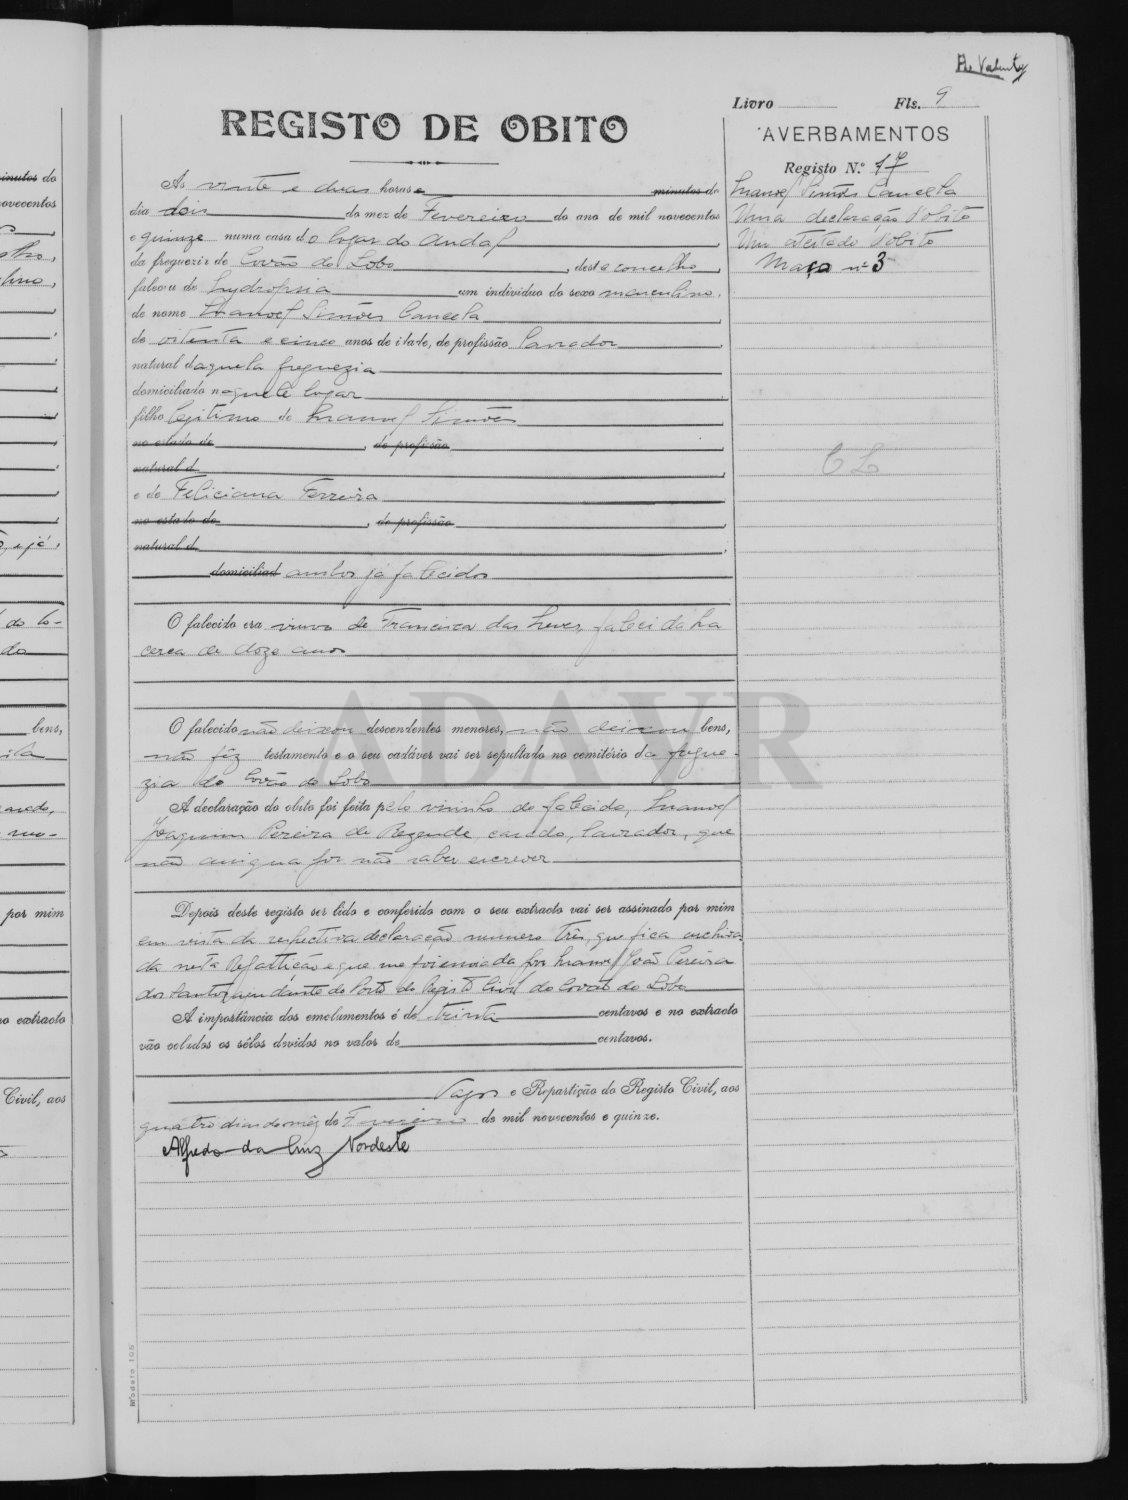 A. Valente
Livro Fls. 9
REGISTO DE OBITO
AVERBAMENTOS
Registo N.º 17
Manoel Simões Cancela
Uma declaração d'obito
Um atestado d'obito
Maço nº 3
C L
Ás vinte e duas horas e minutos do
dia dois do mez de Fevereiro do ano de mil novecentos
e quinze numa casa do logar do Andal,
da freguezia de Covão do Lobo, deste concelho,
faleceu de hydropsia um individuo do sexo masculino,
de nome Manoel Simões Cancela
de oitenta e cinco anos de idade, de profissão lavrador,
natural daquela freguezia
domiciliado naquele logar,
filho legitimo de Manoel Simões
no estado de, de profissão
natural d
e de Feliciana Ferreira
no estado de, de profissão,
natural d,
domiciliad ambos já falecidos
O falecido era viuvo de Francisca das Neves, falecida ha
cerca de doze anos
O falecido não deixou descendentes menores, não deixou bens,
não fêz testamento e o seu cadáver vai ser sepultado no cemitério da fregue-
zia do Covão do Lobo
A declaração do obito foi feita pelo visinho do falecido, Manoel
Joaquim Pereira de Rezende, casado, lavrador, que
não assigna por não saber escrever
Depois deste registo ser lido e conferido com o seu extracto vai ser assinado por mim
em vista da respectiva declaração numero três, que fica archiva-
da nesta Repartição e que me foi enviada por Manoel João Pereira
dos Santos, ajudante do Posto do Registo Civil do Covão do Lobo
A importância dos emolumentos é de trinta centavos e no extracto
vão colados os sêlos devidos no valor de centavos.
Vagos e Repartição do Registo Civil, aos
quatro dias do mês de Fevereiro de mil novecentos e quinze.
Alfredo da Cruz Nordeste
ADAVR
Modelo 105
minutos do
novecentos
bens,
por mim
no extracto
Civil, aos